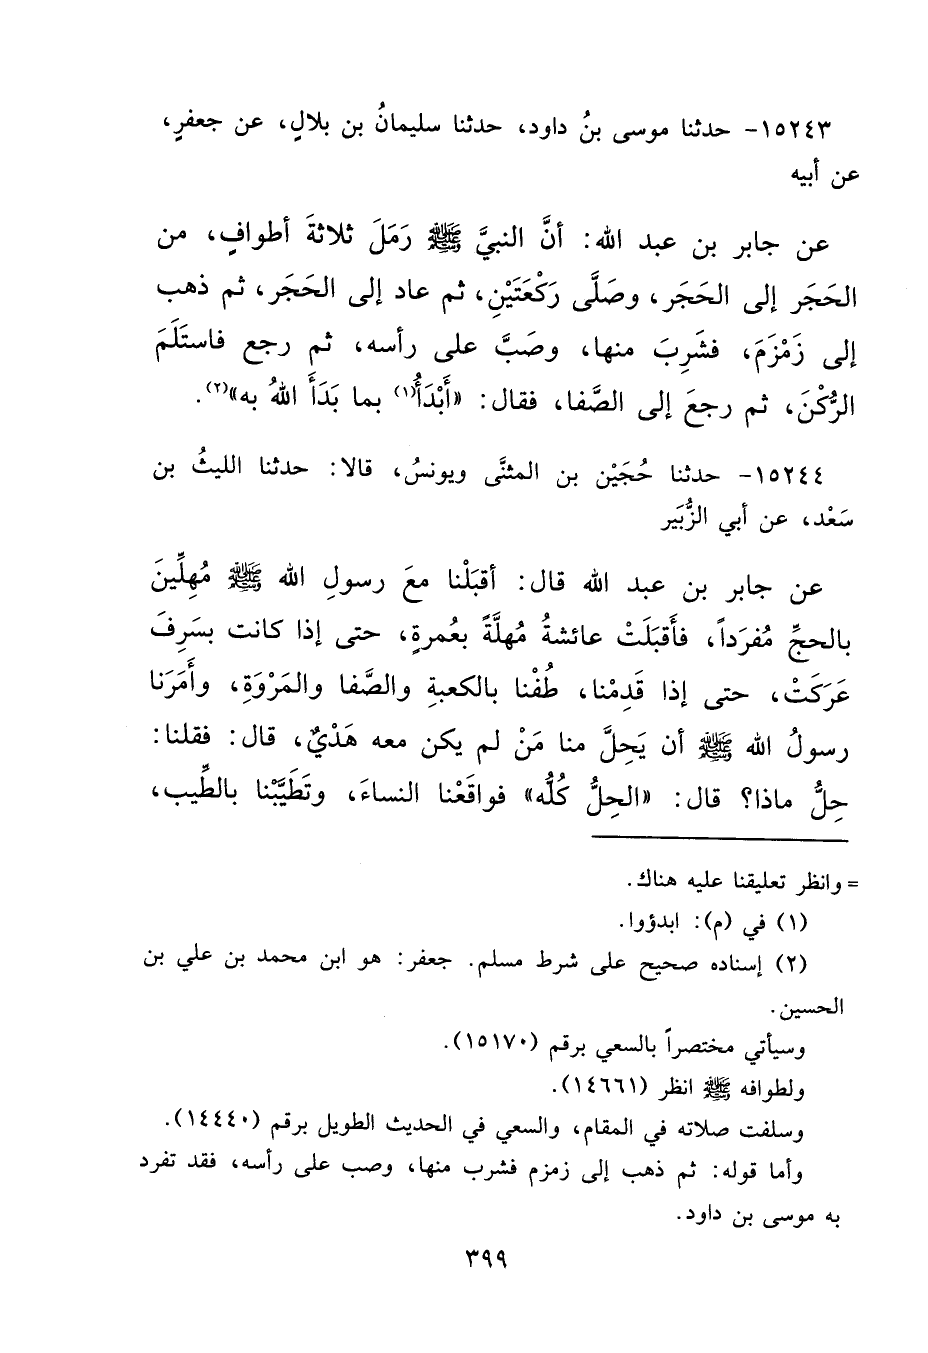 ١٥٢٤٣- حدثنا موسى بنُ داود، حدثنا سليمانُ بن بلالٍ، عن جعفرٍ،
عن أبيه
عن جابر بن عبد الله: أنَّ النبيَّ ﷺ رَمَلَ ثلاثةَ أطوافٍ، من
الحَجَر إلى الحَجَر، وصَلَّى رَكْعَتَيْنِ، ثم عاد إلى الحَجَر، ثم ذهب
إلى زَمْزَمَ، فشَرِبَ منها، وصَبَّ على رأسه، ثم رجع فاستَلَمَ
الرُّكْنَ، ثم رجعَ إلى الصَّفا، فقال: «أَبْدَأُ(١) بما بَدَأَ اللهُ به»(٢).
١٥٢٤٤- حدثنا حُجَيْن بن المثنَّى ويونسُ، قالا: حدثنا الليثُ بن
سَعْد، عن أبي الزُّبَير
عن جابر بن عبد الله قال: أقبَلْنا معَ رسولِ الله ﷺ مُهِلِّينَ
بالحجِّ مُفرَداً، فأَقبَلَتْ عائشةُ مُهلَّةً بعُمرةٍ، حتى إذا كانت بسَرِفَ
عَرَكَتْ، حتى إذا قَدِمْنا، طُفْنا بالكعبةِ والصَّفا والمَرْوَةِ، وأَمَرَنا
رسولُ الله ﷺ أن يَحِلَّ منا مَنْ لم يكن معه هَدْيٌ، قال: فقلنا:
حِلُّ ماذا؟ قال: «الحِلُّ كُلُّه» فواقَعْنا النساءَ، وتَطَيَّبْنا بالطِّيب،
= وانظر تعليقنا عليه هناك.
(١) في (م): ابدؤوا.
(٢) إسناده صحيح على شرط مسلم. جعفر: هو ابن محمد بن علي بن
الحسين.
وسيأتي مختصراً بالسعي برقم (١٥١٧٠).
ولطوافه ﷺ انظر (١٤٦٦١).
وسلفت صلاته في المقام، والسعي في الحديث الطويل برقم (١٤٤٤٠).
وأما قوله: ثم ذهب إلى زمزم فشرب منها، وصب على رأسه، فقد تفرد
به موسى بن داود.
٣٩٩